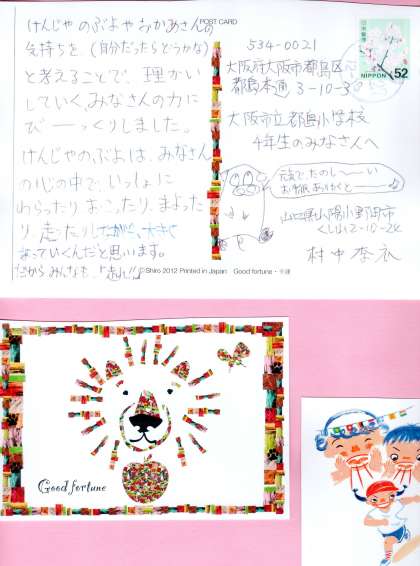 けんじゃのぶよやおかあさんの
気持ちを（自分だったらどうかな）
と考えることで、理かい
していくみなさんの力に
びーーっくりしました。
けんじゃのぶよは、みなさん
の心の中で、いっしょに
わらったり おこったり、まよった
り 走ったりしながら、大きく
なっていくんだと思います。
だからみんなも、
POST CARD
日本郵便
NIPPON 52
534-0021
大阪府大阪市都島区
都島本通 3-10-3
大阪市立都島小学校
4年生のみなさんへ
元気でたのし〜〜い
お手紙ありがと〜〜
山口県山陽小野田市
村中李衣
©Shiro 2012 Printed in Japan Good fortune
Good fortune